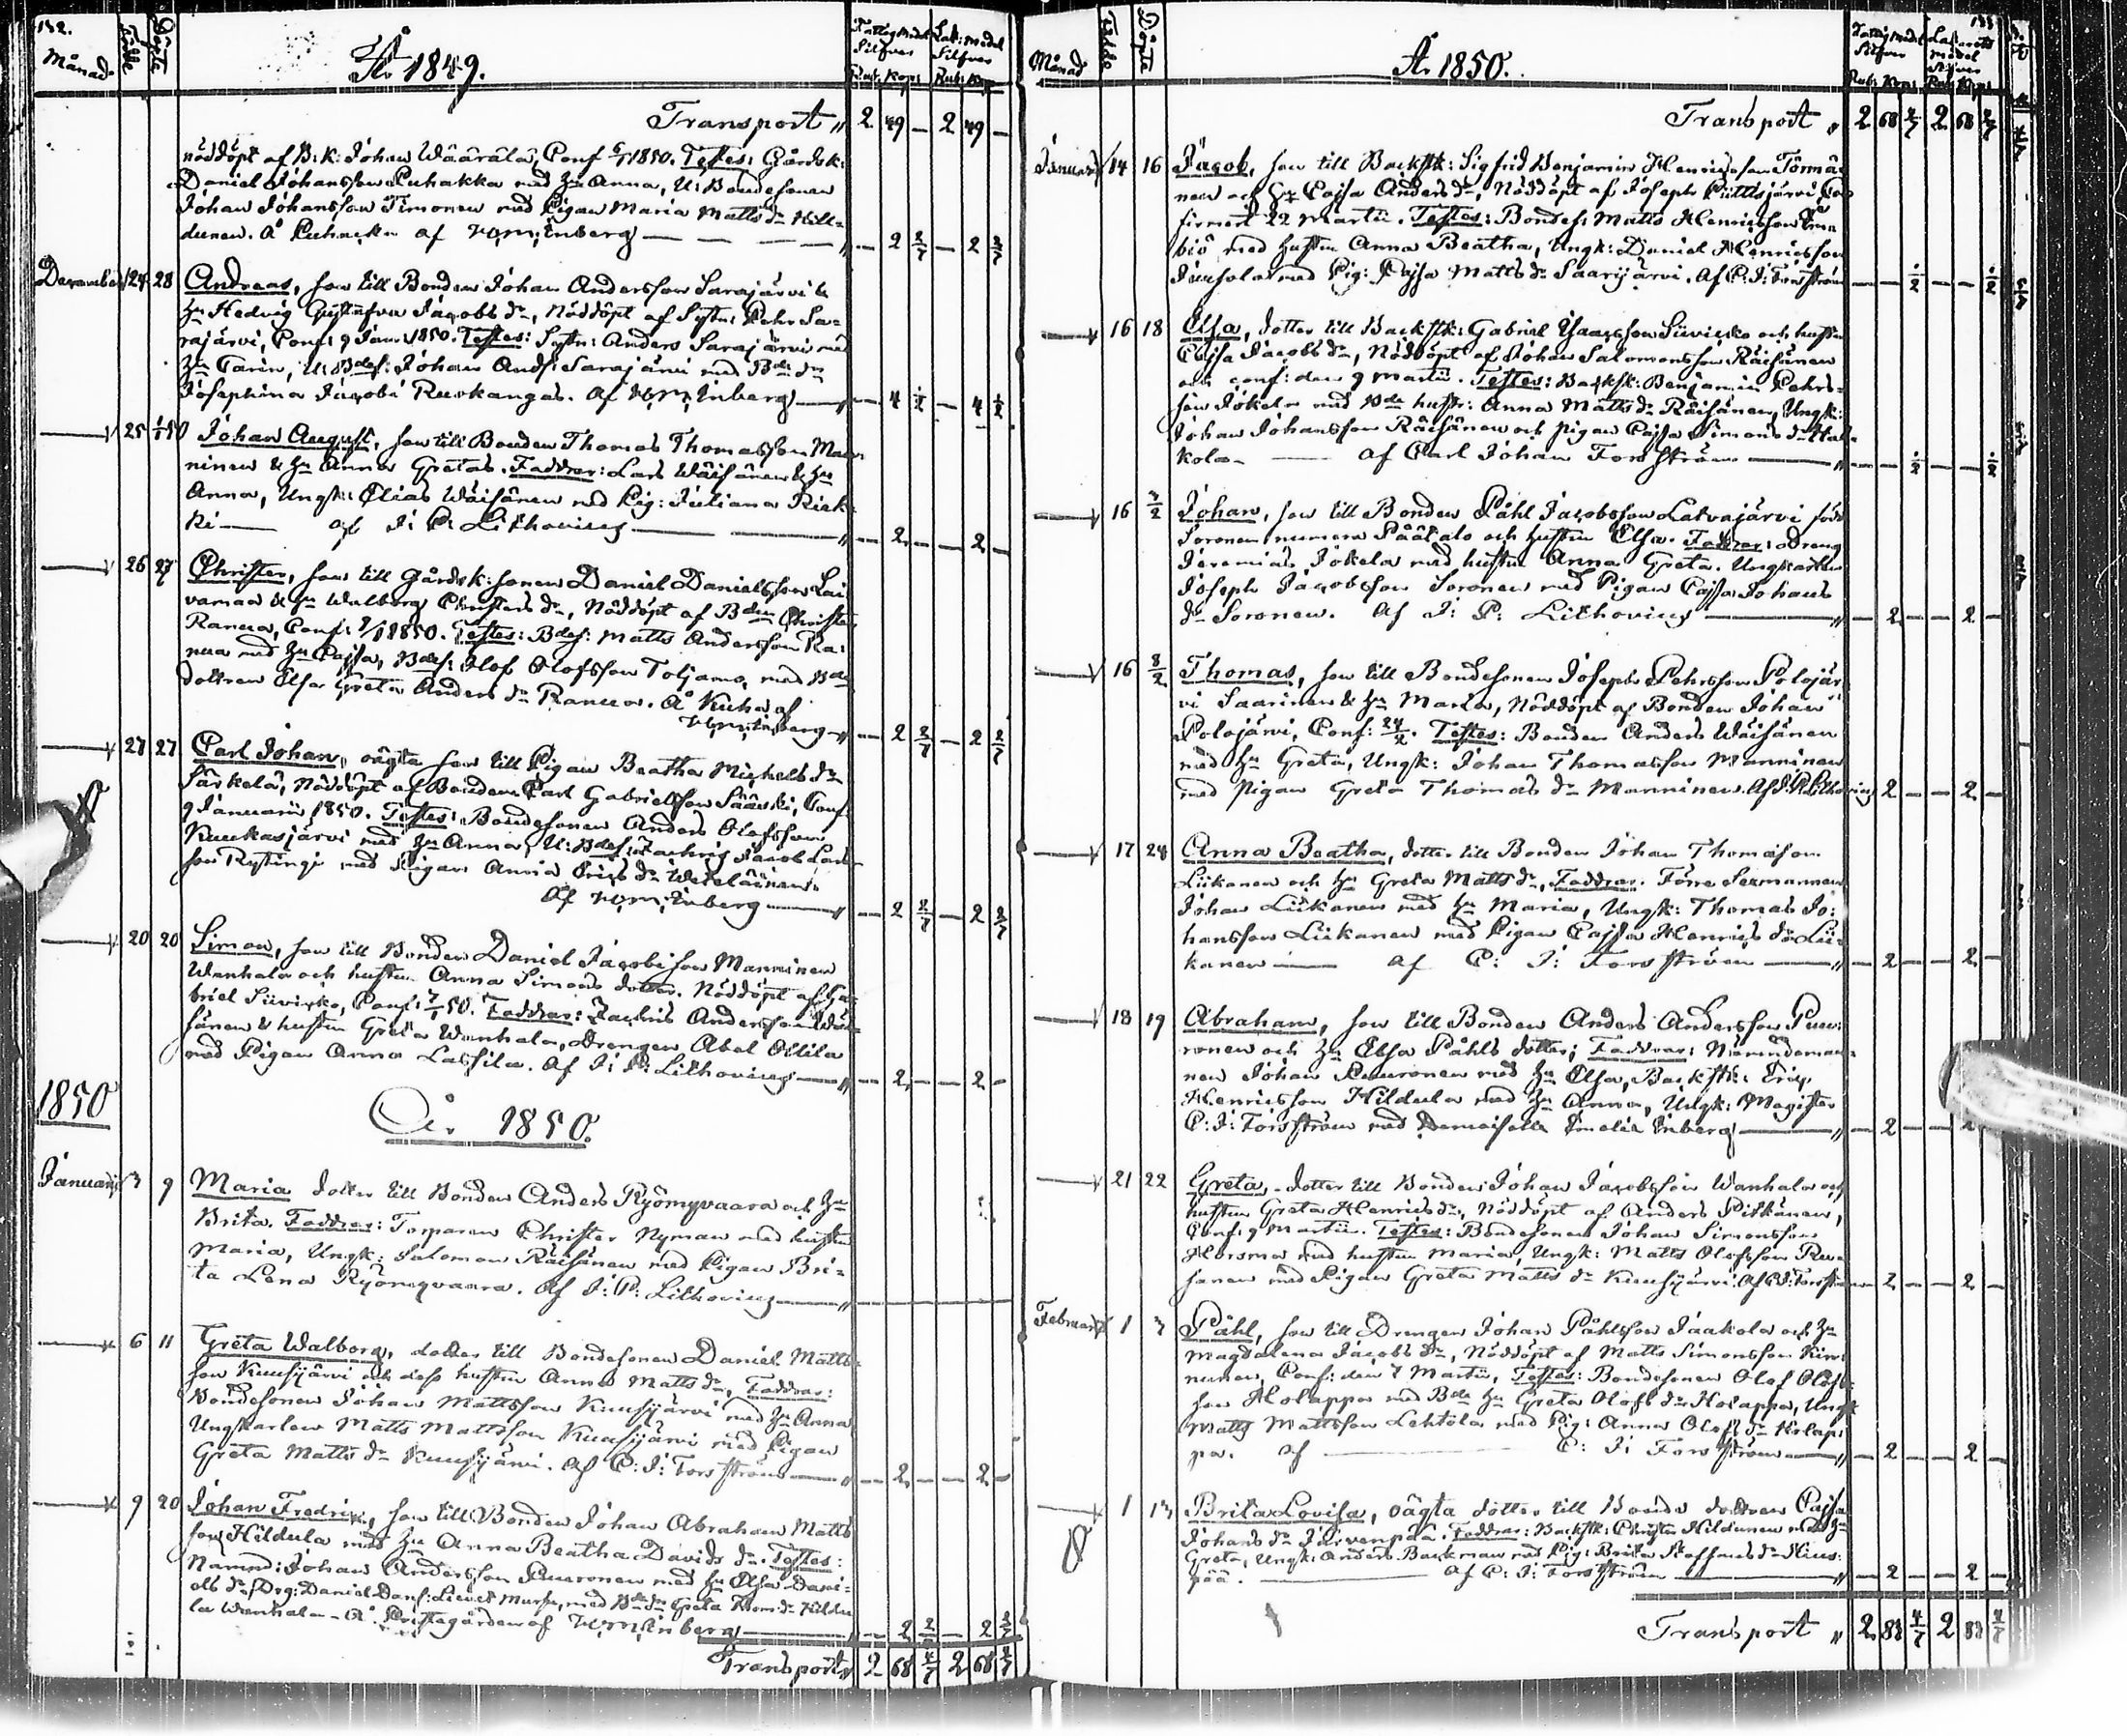 132.
Månad. Födde Döpte
År 1849.
Fattig Medel Silfver Laz: medel Silfver
Rub: Kop: Rub: Kop:
Transport " 2 49 — 2 49 —
nöddöpt af B: k: Johan Wäärälä, Conf 6/1 1850. Testes: Gårdsk:
Daniel Johansson Puhakka med Hu Anna, U: Bondesonen
Johan Johansson Timonen med Pigan Maria Matts dr Hill-
dunen. Å Puhacka af W: M: Enberg — — — " — 2 2/7 — 2 2/7
December 24 28 Andreas, son till Bonden Johan Andersson Sarajärvi &
Hu Hedvig Gustafva Jacobs dr, Nöddöpt af Sytn: Pehr Sa-
rajärvi, Conf: 9 Jan: 1850. Testes: Sytn: Anders Sarajärvi med
Hu Carin, U: Bdes: Johan Ands: Sarajärvi med Bde dr
Josephina Jacobi Ruokangas. Af W: M: Enberg — " — 4 1/2 — 4 1/2
— 25 1/1 50 Johan August, son till Bonden Thomas Thomasson Man-
ninen & Hu Anna Gretas. Faddrar: Lars Wäisänen & Hu
Anna, Ungk: Elias Wäisänen med Pig: Juliana Rick-
ki — af J: P: Lithovius — " — 2 — — 2 —
— 26 27 Christer, son till Gårdsk: sonen Daniel Danielsson Lai
vamaa & Hu Walborg Christers dr, Nöddöpt af Bden Christer
Ranua, Conf: 9/1 1850. Testes: Bdes: Matts Andersson Ra-
nua med Hu Cajsa, Bdes: Olof Olofsson Toljamo, med Bde
dottren Elsa Greta Anders dr Ranua. Å Kuha af
W: M: Enberg " — 2 2/7 — 2 2/7
— 27 27 Carl Johan, oägta son till Pigan Beatha Michels dr
Särkelä, Nöddöpt af Bonden Carl Gabrielsson Sääski, Conf:
9 Januarii 1850. Testes: Bondesonen Anders Olofsson
Kuukasjärvi med Hu Anna, U: Bdes: Zachris Jacob Lars-
son Rytinge med Pigan Anna Erics dr Witeläinen.
Af W: M: Enberg — " — 2 2/7 — 2 2/7
— 20 20 Simon, son till Bonden Daniel Jacobsson Manninen
Wanhala och hustrun Anna Simons dotter. Nöddöpt af Ga-
briel Siivicko, Conf: 7/1 50. Faddrar: Zachris Andersson Wäi-
sänen & hustrun Greta Wanhala, Drengen Abel Ollila
med Pigan Anna Lassila. Af J: P: Lithovius — " — 2 — — 2 —
1850
År 1850.
Januarii 3 9 Maria dotter till Bonden Anders Ryömgvaara och Hu
Brita. Faddrar: Torparen Christer Nyman med hustrun
Maria, Ungk: Salomon Räisänen med Pigan Bri-
ta Lena Ryömgvaara. Af J: P: Lithovius — "
— 6 11 Greta Walborg, dotter till Bondesonen Daniel Matts-
son Kuusijärvi och dess hustru Anna Matts dr, Faddrar:
Bondesonen Johan Mattsson Kuusijärvi med Hu Anna
Ungkarlen Matts Mattsson Kuusijärvi med Pigan
Greta Matts dr Kuusijärvi. Af C: J: Forsström — " — 2 — — 2 —
— 9 20 Johan Fredric, son till Bonden Johan Abraham Matts
son Hildula med Hu Anna Beatha Davids dr. Testes:
Nämnd: Johan Andersson Puuronen med Hu Elsa Dani-
els dr, Drg: Daniel Dans: Lievet Mursu, med Bde dr Greta Thom: dr Hildu
la Wanhala - Å Prestegården af W: M: Enberg — " — 2 2/7 — 2 2/7
Transport " 2 68 4/7 2 68 4/7
133
Månad Födde Döpte
År 1850.
Fattig Medel Silfver Lazaretts medel Silfver
Rub: Kop: Rub: Kop:
Transport " 2 68 4/7 2 68 4/7
Januarii 14 16 Jacob, son till Backstk: Sigfrid Benjamin Henricsson Törmä-
nen och Hu Cajsa Anders dr, Nöddöpt af Joseph Puttisjärvi, Con
firmert 22 Martii. Testes: Bondes: Matts Henricsson Em-
biö med hustrun Anna Beatha, Ungk: Daniel Henricsson
Juusola med Pig: Cajsa Matts dr Saarijärvi. Af C: J: Forsström — — 1/2 — — 1/2
— 16 18 Elsa, dotter till Backstk: Gabriel Isacsson Siivicko och hustrun
Cajsa Jacobs dr, Nöddöpt af Johan Salomonsson Räisänen
och conf: den 9 Martii. Testes: Backstk: Benjamin Pehrs-
son Jokela med Bde hustr: Anna Matts dr Räisänen, Ungk:
Johan Johansson Räisänen och Pigan Cajsa Simons dr Ha-
kola — af Carl Johan Forsström — " — — 1/2 — — 1/2
— 16 3/2 Johan, son till Bonden Påhl Jacobsson Latvajärvi född
Soronen numera Päätalo och hustrun Elsa. Faddrar: Dreng
Jeremias Jokela med hustrun Anna Greta. Ungkarlen
Joseph Jacobsson Soronen med Pigan Cajsa Johans
dr Soronen. Af J: P: Lithovius — " — 2 — — 2 —
— 16 8/2 Thomas, son till Bondesonen Joseph Pehrsson Polojär
vi Saarinen & Hu Maria, Nöddöpt af Bonden Johan
Polojärvi, Conf: 24/2. Testes: Bonden Anders Wäisänen
med Hu Greta, Ungk: Johan Thomasson Manninen
med Pigan Greta Thomas dr Manninen. Af J: P: Lithovius 2 — — 2 —
— 17 24 Anna Beatha, dotter till Bonden Johan Thomason
Liikanen och Hu Greta Matts dr, Faddrar. Förre Sexmannen
Johan Liikanen med Hu Maria, Ungk: Thomas Jo-
hansson Liikanen med Pigan Cajsa Henrics dr Lii-
kanen — af C: J: Forsström — " — 2 — — 2 —
— 18 19 Abraham, son till Bonden Anders Andersson Puu-
ronen och Hu Ebba Påhls dotter; Faddrar: Nämndeman-
nen Johan Puuronen med Hu Elsa, Backstk: Eric
Henricsson Hildula med Hu Anna, Ungk: Magister
C: J: Forsström med Demoiselle Emelie Enberg — " — 2 —
— 21 22 Greta, dotter till Bonden Johan Jacobsson Wanhala och
hustrun Greta Henrics dr, Nöddöpt af Anders Pitkänen,
Conf: 9 Martii. Testes: Bondesonen Johan Simonsson
Horsma med hustrun Maria, Ungk: Matts Olofsson Puu-
sanen med Pigan Greta Matts dr Kuusijärvi. Af C: J: Forsström — 2 — — 2 —
Februarii 1 3 Påhl, son till Drengen Johan Påhlsson Jaakola och Hu
Magdalena Jacobs dr, Nöddöpt af Matts Simonsson Kin-
nunen, Conf: den 7 Martii, Testes: Bondesonen Olof Olofs-
son Holappa med Bde Hu Greta Olofs dr Holappa, Ungk
Matts Mattsson Lehtola med Pig: Anna Olofs dr Holap-
pa. af — C: J: Forsström — " — 2 — — 2 —
— 1 13 Brita Lovisa, oägta dotter till Bonde dottren Cajsa
Johans dr Järvenpää. Faddrar: Backstk: Christer Hildunen med Hu
Greta, Ungk: Anders Backman med Pig: Brita Staffans dr Kius-
pää. — af C: J: Forsström — " — 2 — — 2 —
Transport " 2 83 4/7 2 83 4/7